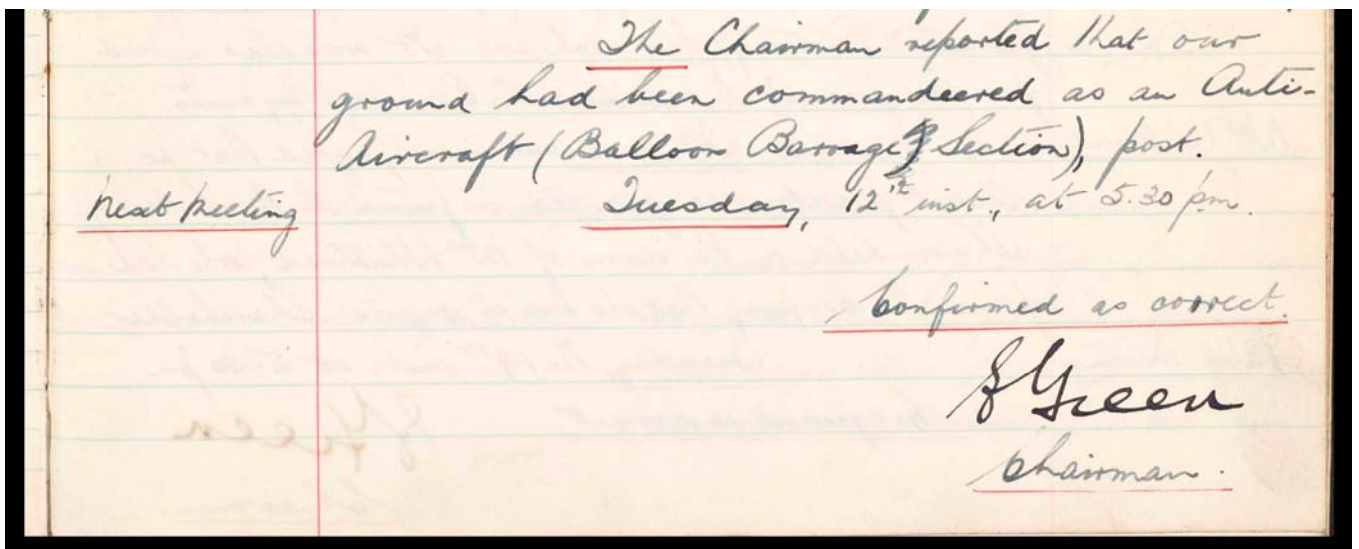 The Chairman reported that our
ground had been commandeered as an Anti-
Aircraft (Balloon Barrage Section), post.
Next Meeting Tuesday, 12th inst., at 5.30 pm.
Confirmed as correct.
S Green
Chairman.